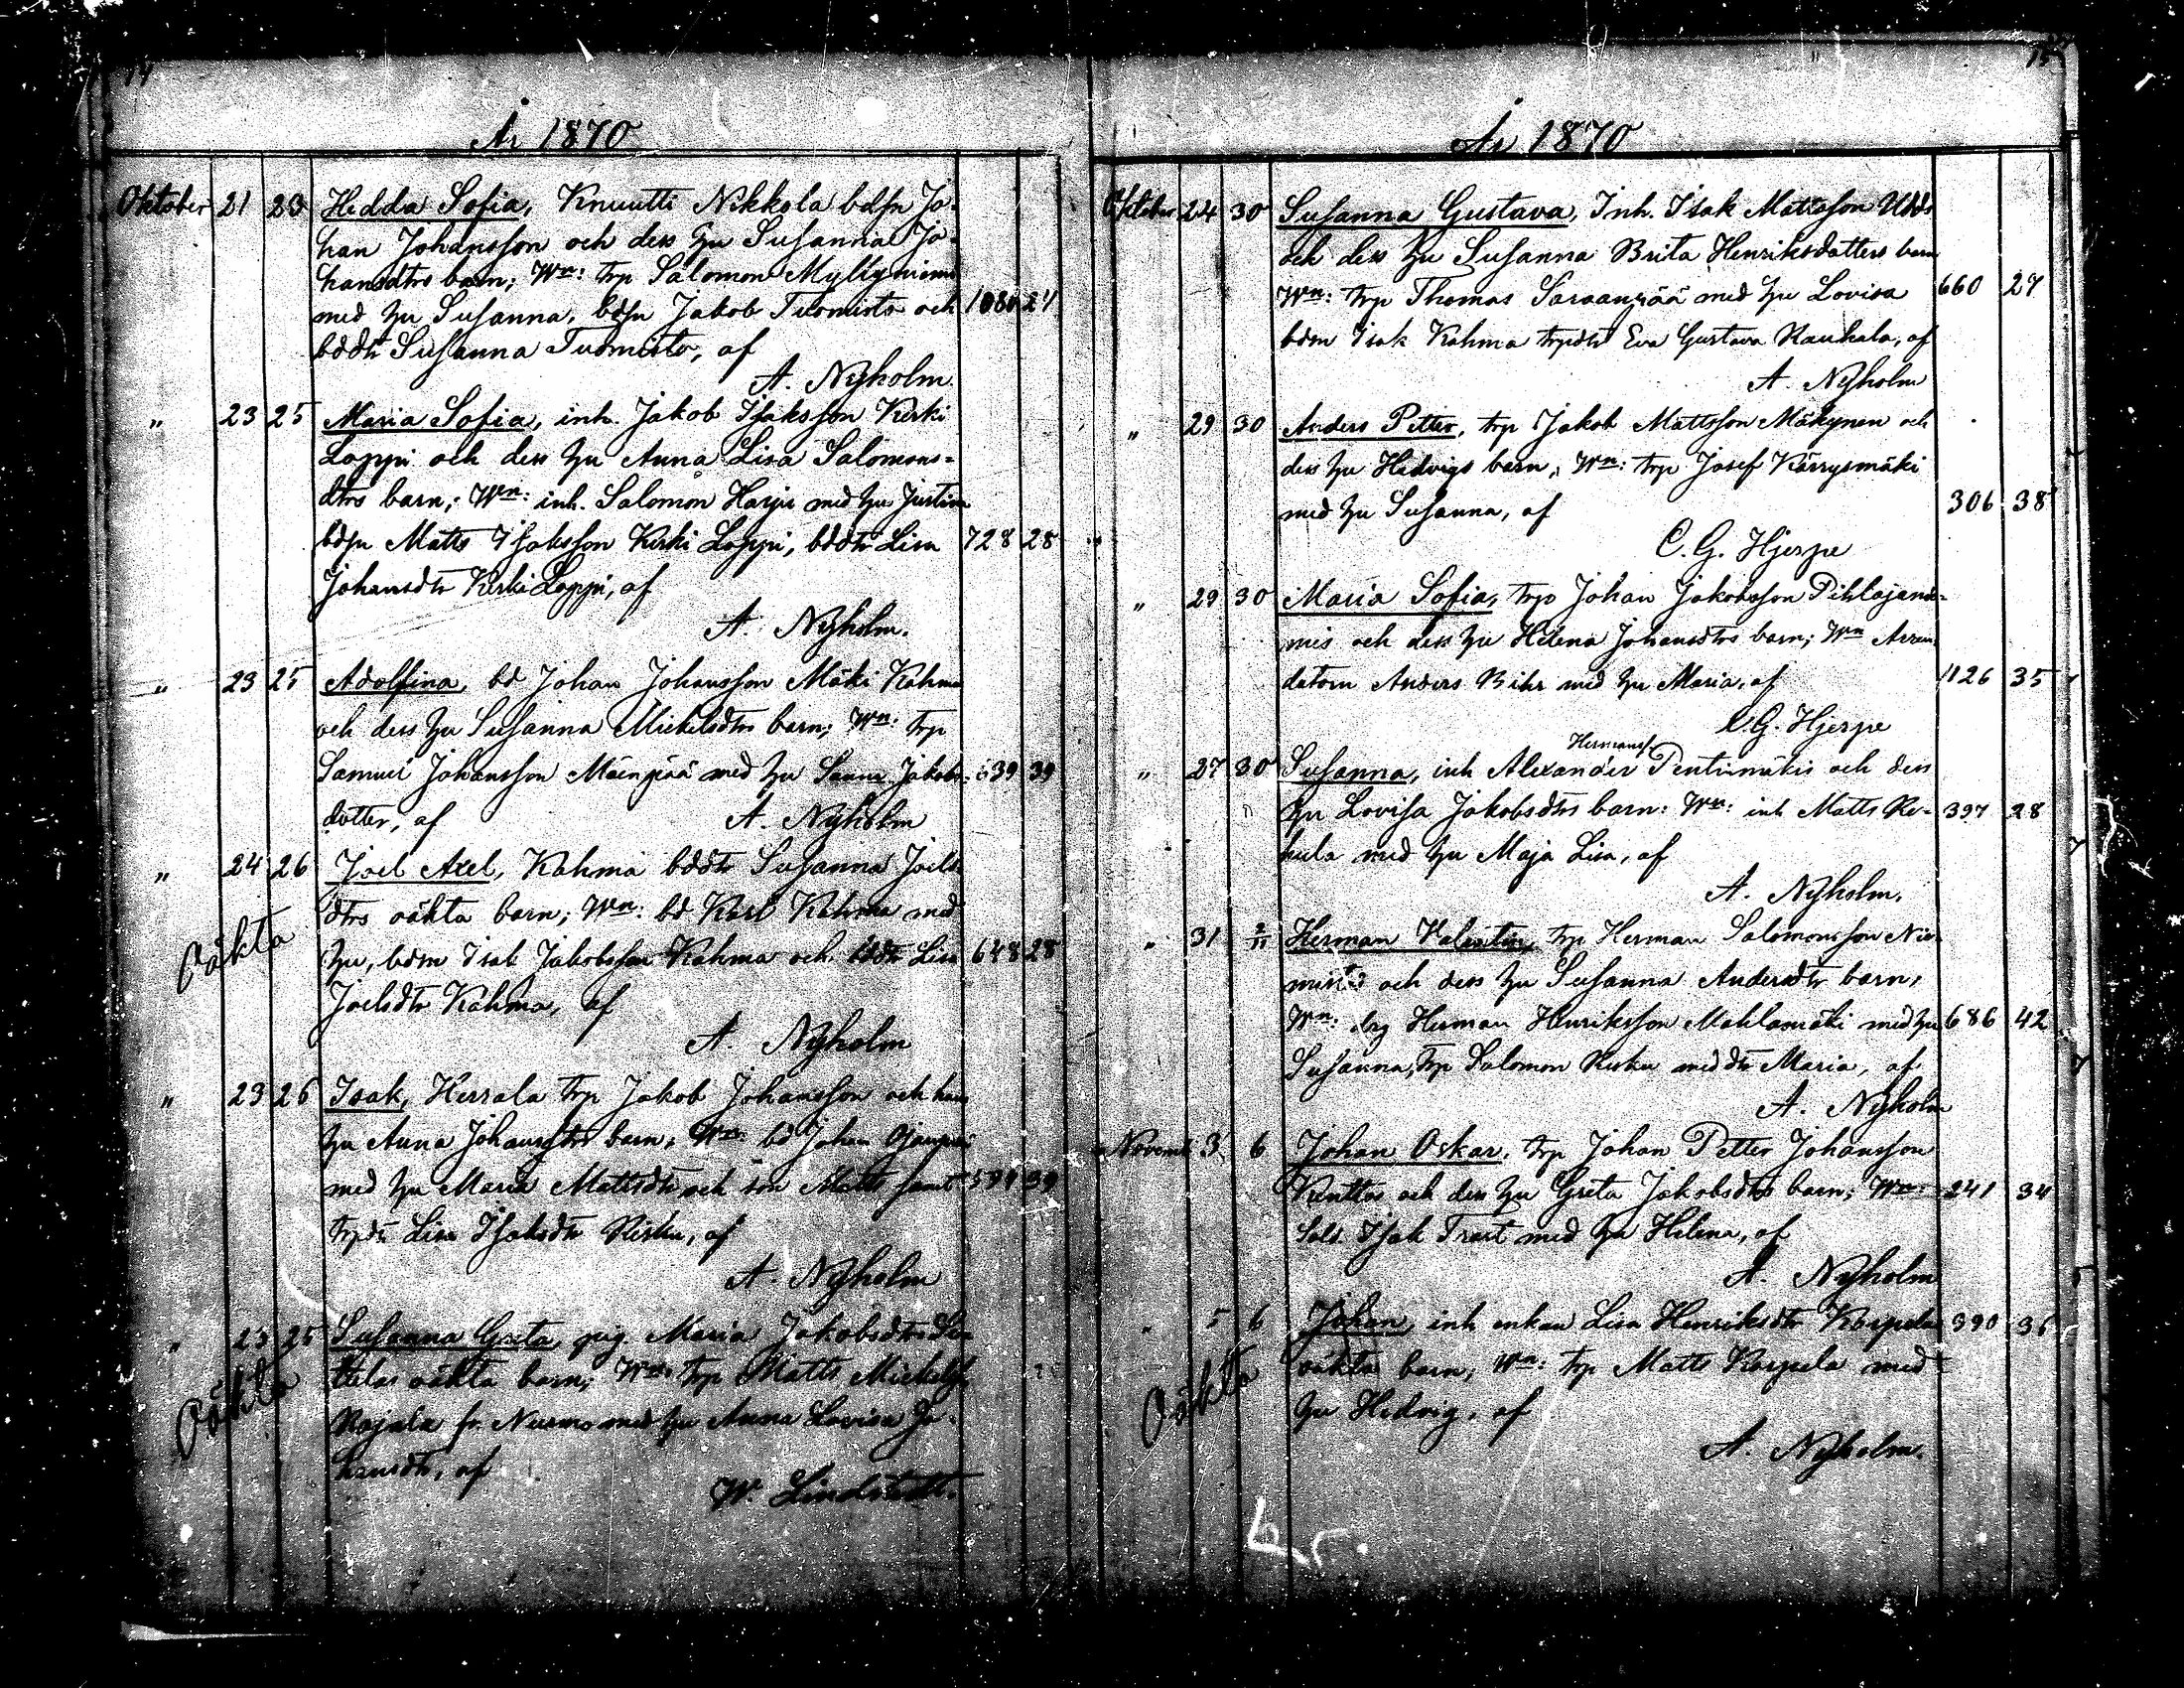 14
År 1870
Oktober 21 23 Hedda Sofia, Knuutti Nikkola bdsn Jo-
han Johansson och dess hu Susanna Jo-
hansdtrs barn; Wn: trp Salomon Myllyniemi
med hu Susanna, bdsn Jakob Tuomisto och 1080 24
bddtr Susanna Tuomisto, af
A. Nyholm.
" 23 25 Maria Sofia, inh. Jakob Isaksson Kerki
Loppi och dess hu Anna Lisa Salomons-
dtrs barn; Wn: inh. Salomon Harju med hu Justina
bdsn Matts Isaksson Kerki Loppi, bddtr Lisa 728 28
Johansdtr Kerki Loppi, af
A. Nyholm.
" 23 25 Adolfina, bd Johan Johansson Mäki Kahma
och dess hu Susanna Mickelsdtrs barn; Wn: trp
Samuel Johansson Mäenpää med hu Sanna Jakobs- 639 39
dotter, af A. Nyholm
" 24 26 Joel Axel, Kahma bddtr Susanna Joels-
dtrs oäkta barn; Wn: bd Karl Kahma med
Oäkta
hu, bdsn Isak Jakobsson Kahma och bddtr Lisa 648 28
Joelsdtr Kahma, af
A. Nyholm
" 23 26 Isak, Herrala trp Jakob Johansson och hans
hu Anna Johansdtrs barn; Wn: bd Johan
med hu Maria Mattsdtr och son Matts samt 39
trpdtr Lisa Isaksdtr Risku, af
A. Nyholm
" 23 25 Susanna Greta, pig. Maria Jakobsdtrs
oäkta barn; Wn: trp Matts Mickelss.
Oäkta
Rajala fr. Nurmo med hu Anna Lovisa Jo-
hansdtr, af
W. Lindstedt.
15
År 1870
Oktober 24 30 Susanna Gustava, Inh. Isak Mattsson
och dess hu Susanna Brita Henriksdotters barn
Wn: trp Thomas Saraanpää med hu Lovisa 660 27
bdsn Isak Kahma trpdtr Eva Gustava Kauhala, af
A. Nyholm
" 29 30 Anders Petter, trp Jakob Mattsson Mäkynen och
dess hu Hedvigs barn; Wn: trp Josef Kärrysmäki
med hu Susanna, af 306 38
C. G. Hjerpe
" 29 30 Maria Sofia, trp Johan Jakobsson Pihlajanie-
mis och dess hu Helena Johansdtrs barn; Wn Arren-
datorn Anders Bihr med hu Maria, af 1126 35
C. G. Hjerpe
Hermanss.
" 27 30 Susanna, inh Alexander Penttinmäkis och dess
hu Lovisa Jakobsdtrs barn: Wn: inh Matts Re- 397 28
hula med hu Maja Lisa, af
A. Nyholm.
" 31 2/11 Herman Valentin, trp Herman Salomonsson Nie-
mistö och dess hu Susanna Andersdtr barn,
Wn: drg Herman Henriksson Mahlamäki med hu 686 42
Susanna, trp Salomon Risku med dtr Maria, af
A. Nyholm
Novemb 3 6 Johan Oskar, trp Johan Petter Johansson
Kunttas och dess hu Greta Jakobsdtrs barn; Wn: 241 34
Sold. Isak Trast med hu Helena, af
A. Nyholm
" 5 6 Johan, inh enkan Lisa Henriksdtr Korpela 390 36
oäkta barn; Wn: trp Matts Korpela med
Oäkta
hu Hedvig, af
A. Nyholm.